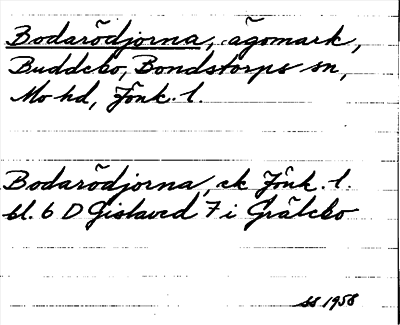 Bodarödjorna, ägomark,
Buddebo, Bondstorps sn,
Mo hd, Jönk. l.
Bodarödjorna, ek Jönk. l.
bl. 6 D Gislaved 7 i Gräлebo
ss 1958